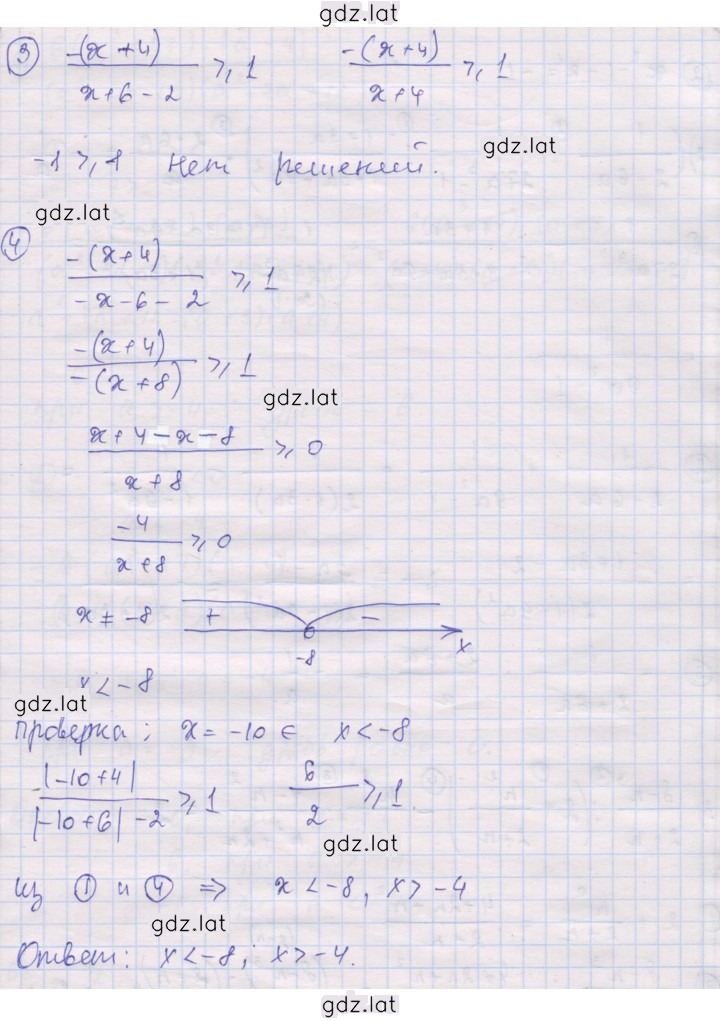 gdz.lat
③ -(x+4)/(x+6-2) ≥ 1    -(x+4)/(x+4) ≥ 1
gdz.lat
-1 ≥ 1 нет решений.
gdz.lat
④ -(x+4)/(-x-6-2) ≥ 1
-(x+4)/-(x+8) ≥ 1
gdz.lat
(x+4-x-8)/(x+8) ≥ 0
-4/(x+8) ≥ 0
x ≠ -8    +    -
-8    x
x < -8
gdz.lat
проверка; x = -10 ∈ x < -8
|-10+4|/(|-10+6|-2) ≥ 1    6/2 ≥ 1.
gdz.lat
из ① и ④ ⇒ x < -8, x > -4
gdz.lat
Ответ: x < -8; x > -4.
gdz.lat